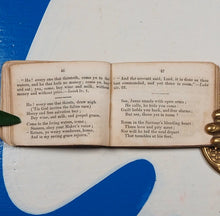 96
"Ho! every one that thirsteth, come ye to the
waters, and he that hath no money; come ye, buy,
and eat; yea, come, buy wine and milk, without
money and without price."—Isaiah lv. 1.
Ho! every one that thirsts, draw nigh,
('Tis God invites the fallen race)
Mercy and free salvation buy;
Buy wine, and milk, and gospel grace.
Come to the living waters, come;
Sinners, obey your Maker's voice;
Return, ye weary wanderers, home,
And in my saving grace rejoice.
97
"And the servant said, Lord, it is done as thou
hast commanded, and yet there is room."—Luke
xiv. 22.
See, Jesus stands with open arms;
He calls, he bids you come
Guilt holds you back, and fear alarms;
But see, there yet is room
Room in the Saviour's bleeding heart
There love and pity meet
Nor will he bid the soul depart
That trembles at his feet.